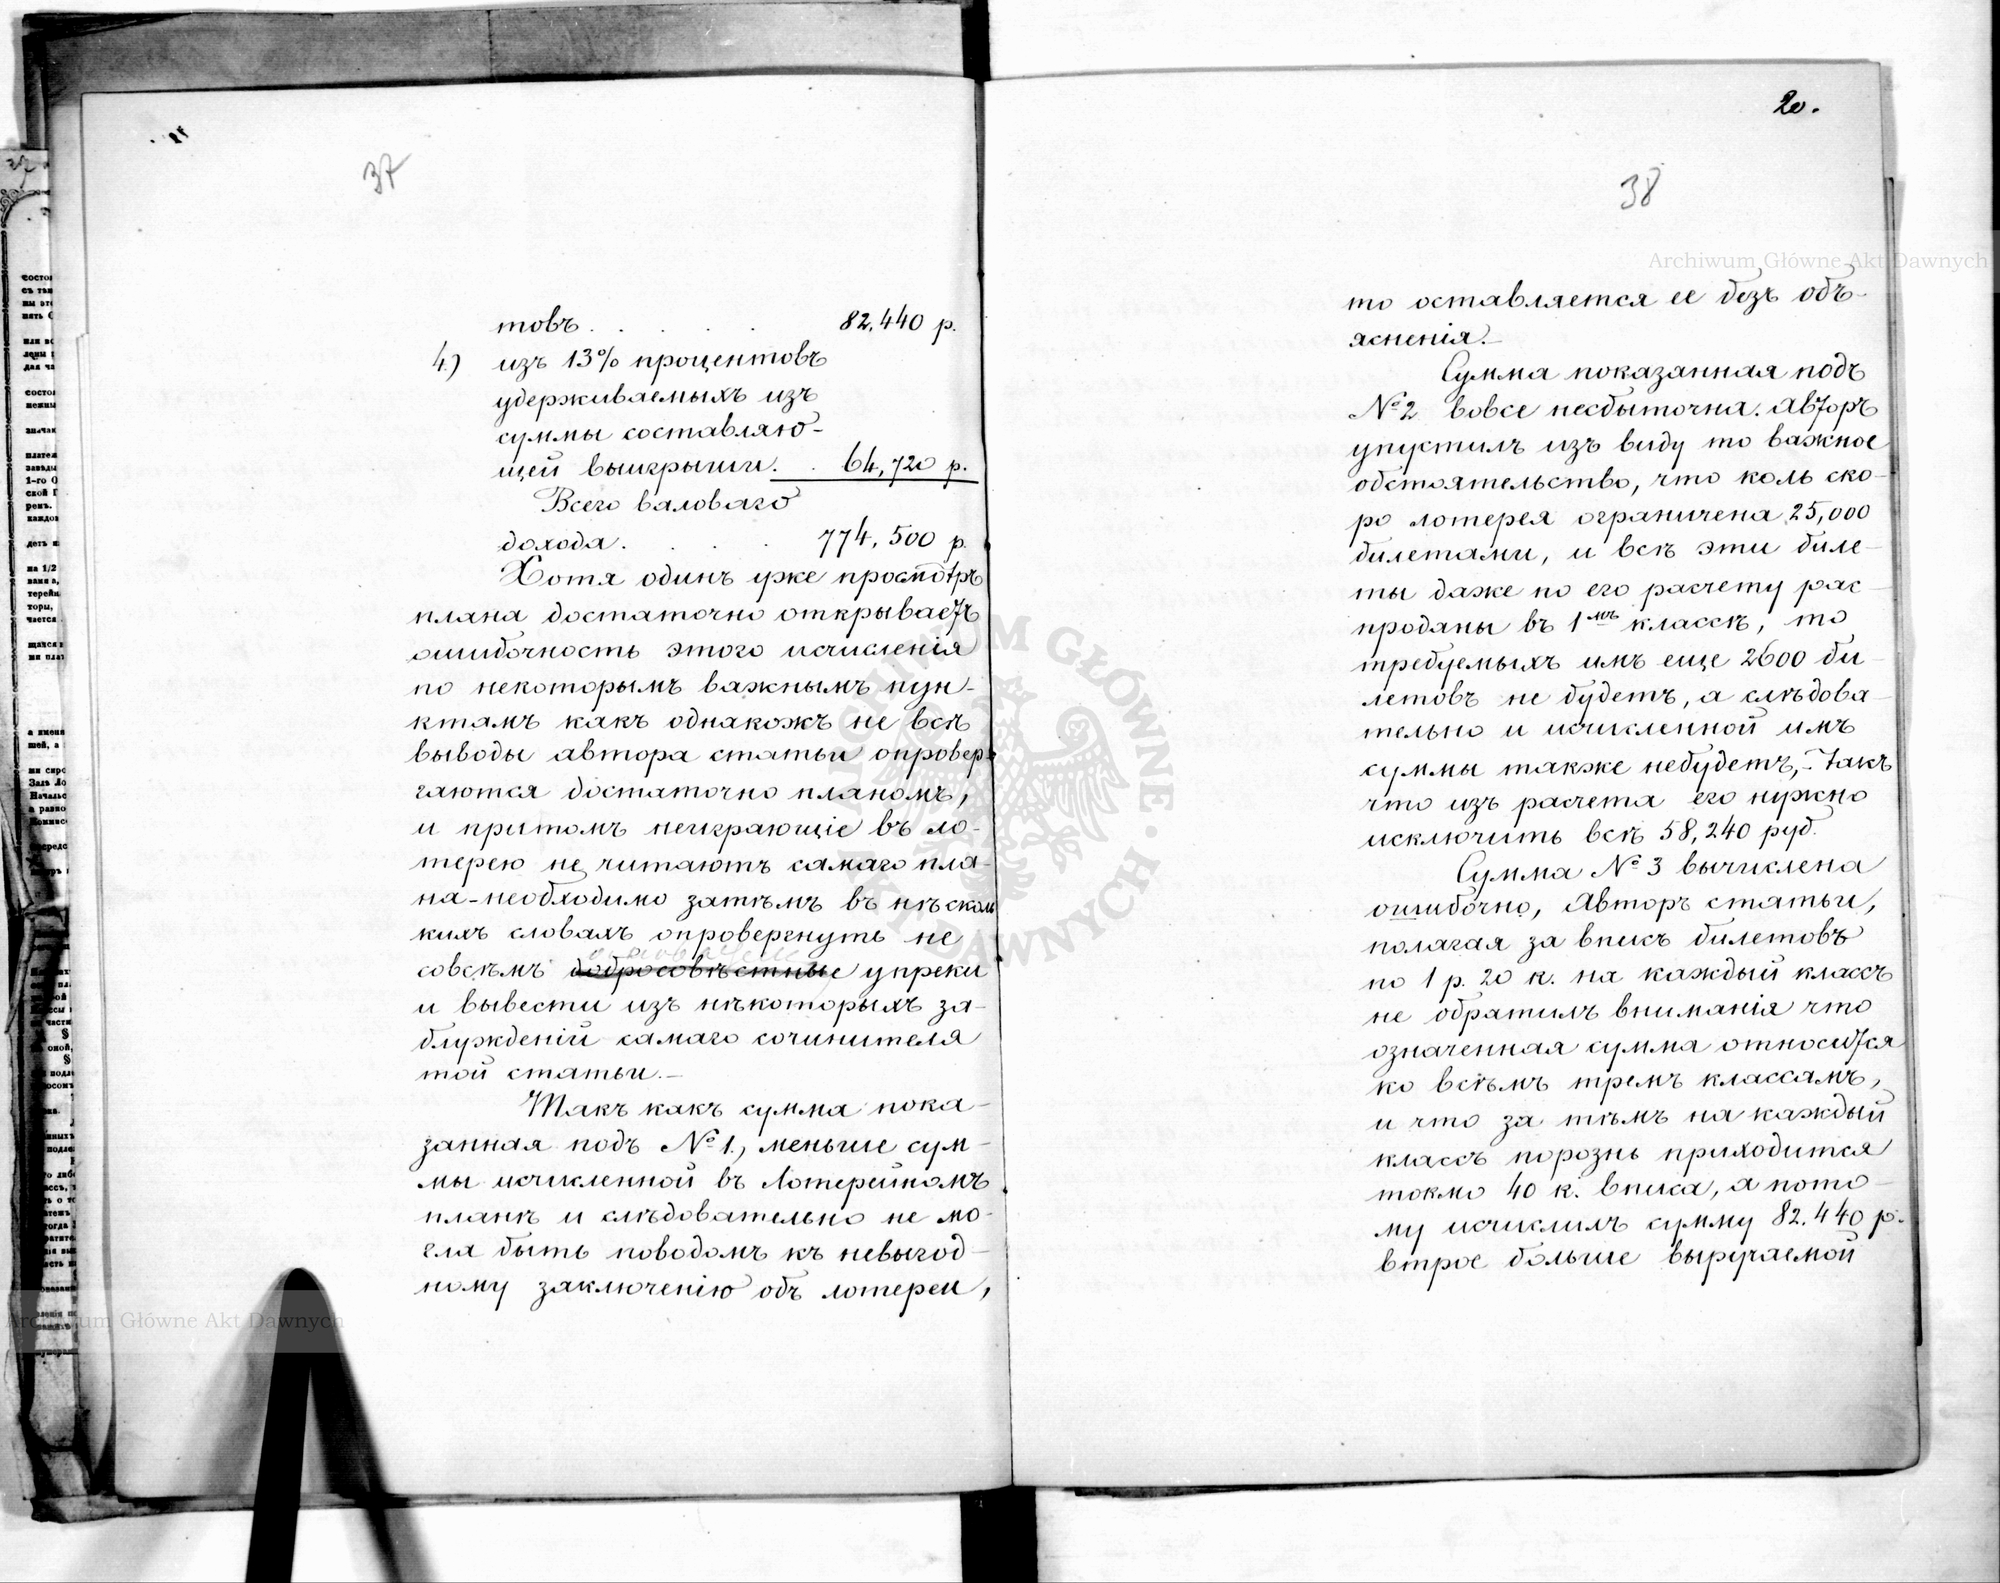 37
товъ . . . . . 82,440 р.
4) изъ 13% процентовъ
удерживаемыхъ изъ
суммы составляю-
щей выигрыши. . 64,720 р.
Всего валоваго
дохода. . . . 774,500 р.
Хотя одинъ уже просмотръ
плана достаточно открываетъ
ошибочность этого исчисленія
по некоторымъ важнымъ пун-
ктамъ какъ однакожъ не всѣ
выводы автора статьи опровер-
гаются достаточно планомъ,
и притомъ неиграющіе въ ло-
терею не читаютъ самаго пла-
на-необходимо затѣмъ въ нѣсколь
кихъ словахъ опровергнуть не
совсѣмъ добросовѣстные упреки
и вывести изъ нѣкоторыхъ за-
блужденій самаго сочинителя
той статьи.—
Такъ какъ сумма пока-
занная подъ № 1, меньше сум-
мы исчисленной въ Лотерейномъ
планѣ и слѣдовательно не мо-
гла быть поводомъ къ невыгод-
ному заключенію объ лотереи,
20.
38
то оставляется ее безъ объ-
ясненія.—
Сумма показанная подъ
№ 2 вовсе несбыточна. Авторъ
упустилъ изъ виду то важное
обстоятельство, что коль ско-
ро лотерея ограничена 25,000
билетами, и всѣ эти биле-
ты даже по его расчету рас-
проданы въ 1мъ классѣ, то
требуемыхъ имъ еще 2600 би-
летовъ не будетъ, а слѣдова-
тельно и исчисленной имъ
суммы также небудетъ,- такъ
что изъ расчета его нужно
исключить всѣ 58,240 руб.
Сумма № 3 вычислена
ошибочно, Авторъ статьи,
полагая за вписъ билетовъ
по 1 р. 20 к. на каждый классъ
не обратилъ вниманія что
означенная сумма относится
ко всѣмъ тремъ классамъ,
и что за тѣмъ на каждый
классъ порознь приходится
токмо 40 к. вписа, а пото-
му исчислилъ сумму 82.440 р.
втрое больше выручаемой
Archiwum Główne Akt Dawnych
Archiwum Główne Akt Dawnych
ARCHIWUM GŁÓWNE AKT DAWNYCH